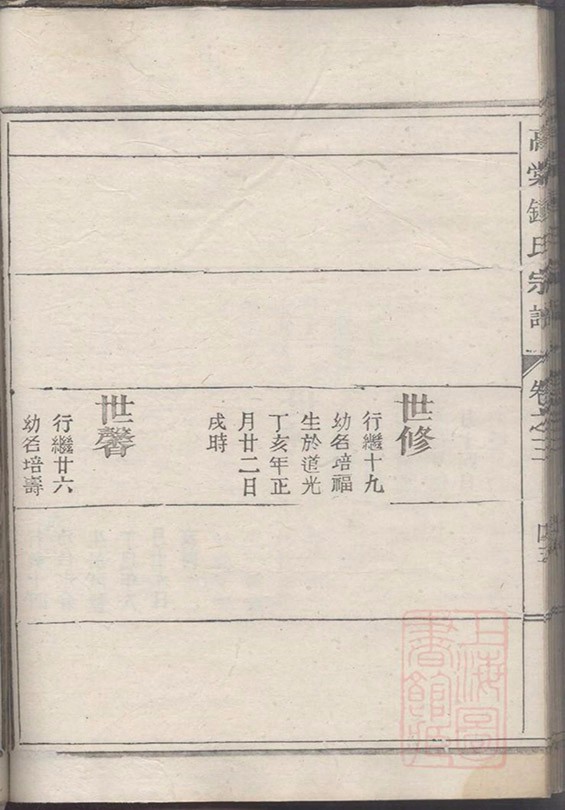 世修
行繼十九
幼名培福
生於道光
丁亥年正
月廿二日
戌時
世馨
行繼廿六
幼名培壽
氏宗譜
卷之三
上海圖
書館藏